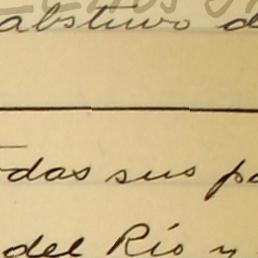 abstuvo d
odas sus pa
del Río y